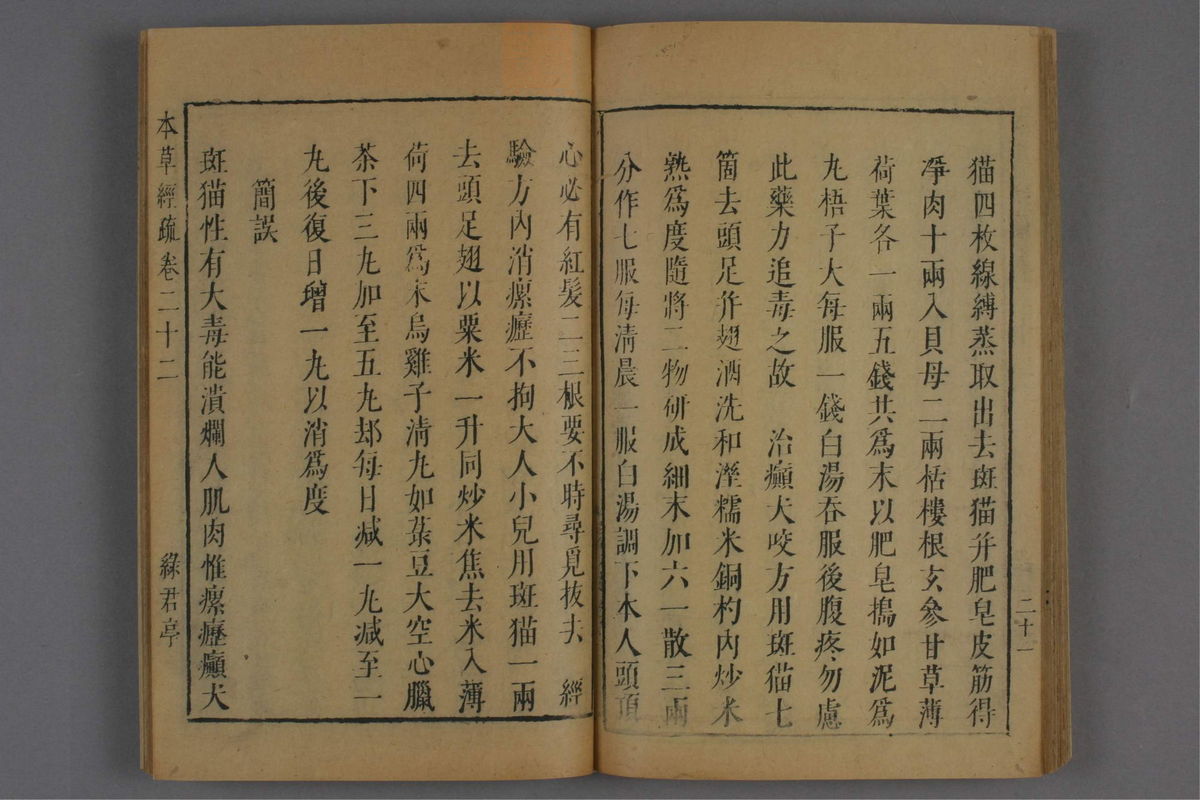 二十一
猫四枚線縛蒸取出去斑猫并肥皂皮筋得
淨肉十兩入貝母二兩栝樓根玄參甘草薄
荷葉各一兩五錢共為末以肥皂搗如泥為
丸梧子大每服一錢白湯吞服後腹疼勿慮
此藥力追毒之故　治癲犬咬方用斑猫七
箇去頭足并翅酒洗和溼糯米銅杓內炒米
熟為度隨將二物研成細末加六一散三兩
分作七服每清晨一服白湯調下本人頭頂
心必有紅髮二三根要不時尋覓拔去　經
驗方內消瘰癧不拘大人小兒用斑猫一兩
去頭足翅以粟米一升同炒米焦去米入薄
荷四兩為末烏雞子清丸如菉豆大空心臘
茶下三丸加至五丸却每日減一丸減至一
丸後復日增一丸以消為度
簡誤
斑猫性有大毒能潰爛人肌肉惟瘰癧癲犬
本草經疏卷二十二
綠君亭